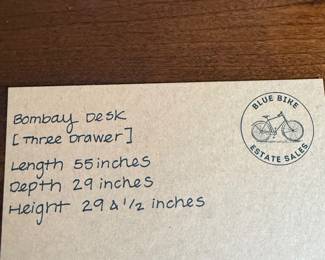 BLUE BIKE
ESTATE SALES
Bombay Desk
[Three Drawer]
Length 55 inches
Depth 29 inches
Height 29 & 1/2 inches